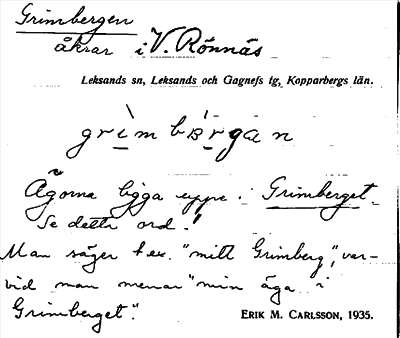 Grimbergen
åkrar i V. Rönnäs
Leksands sn, Leksands och Gagnefs tg, Kopparbergs län.
Ägorna ligga uppe i Grimberget.
Se detta ord!
Man säger t.ex. "mitt Grimberg", var-
vid man menar "min äga i
Grimberget".
ERIK M. CARLSSON, 1935.